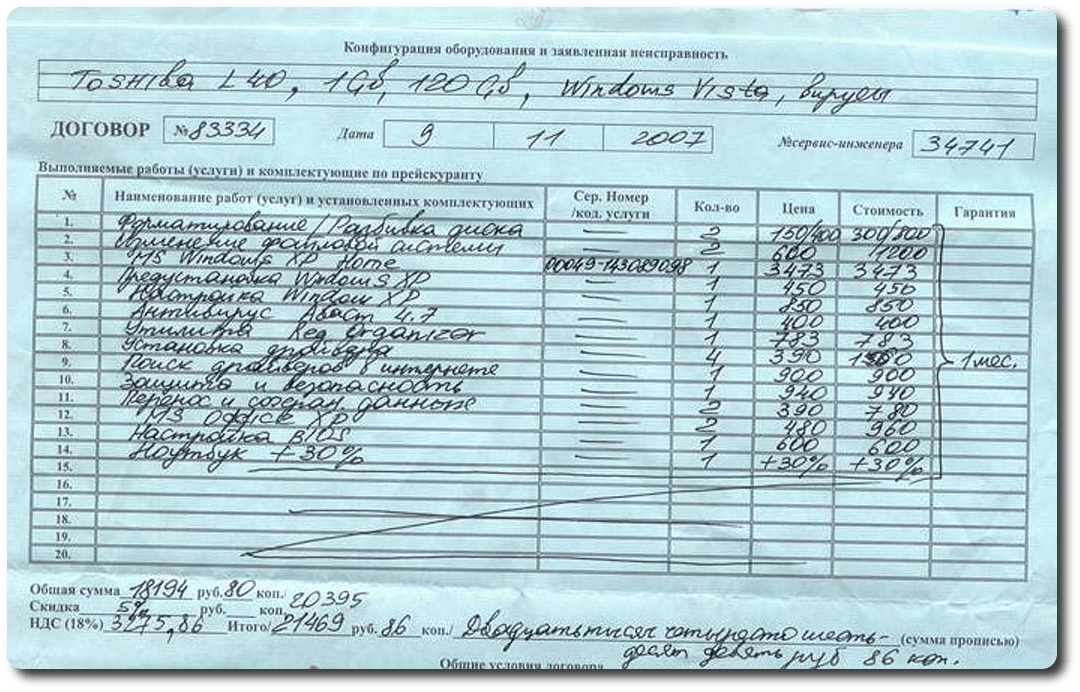 Конфигурация оборудования и заявленная неисправность
Toshiba L40, 1Gб, 120Gб, Windows Vista, вирусы
ДОГОВОР №83334 Дата 9 11 2007 №сервис-инженера 34741
Выполняемые работы (услуги) и комплектующие по прейскуранту
№ Наименование работ (услуг) и установленных комплектующих Сер. Номер /код. услуги Кол-во Цена Стоимость Гарантия
1. Форматирование/Разбивка диска — 2 150/400 300/800
2. Изменение файловой системы — 2 600 1200
3. MS Windows XP Home 00049-143089098 1 3473 3473
4. Предустановка Windows XP — 1 450 450
5. Настройка Window XP — 1 850 850
6. Антивирус Аваст 4.7 — 1 400 400
7. Утилита Reg Organizer — 1 783 783
8. Установка драйвера — 4 390
9. Поиск драйверов в интернете — 1 900 900 1 мес.
10. Защита и безопасность — 1 940 940
11. Перенос и сохран данных — 2 390 780
12. MS Office XP — 2 480 960
13. Настройка BIOS — 1 600 600
14. Ноутбук +30% — 1 +30% +30%
15.
16.
17.
18.
19.
20.
Общая сумма 18194 руб. 80 коп./ 20395
Скидка 5% руб. коп.
НДС (18%) 3275,86 Итого/ 21469 руб. 86 коп./ Двадцать тысяч четыредато шесть- (сумма прописью)
десят девять руб 86 коп.
Общие условия договора